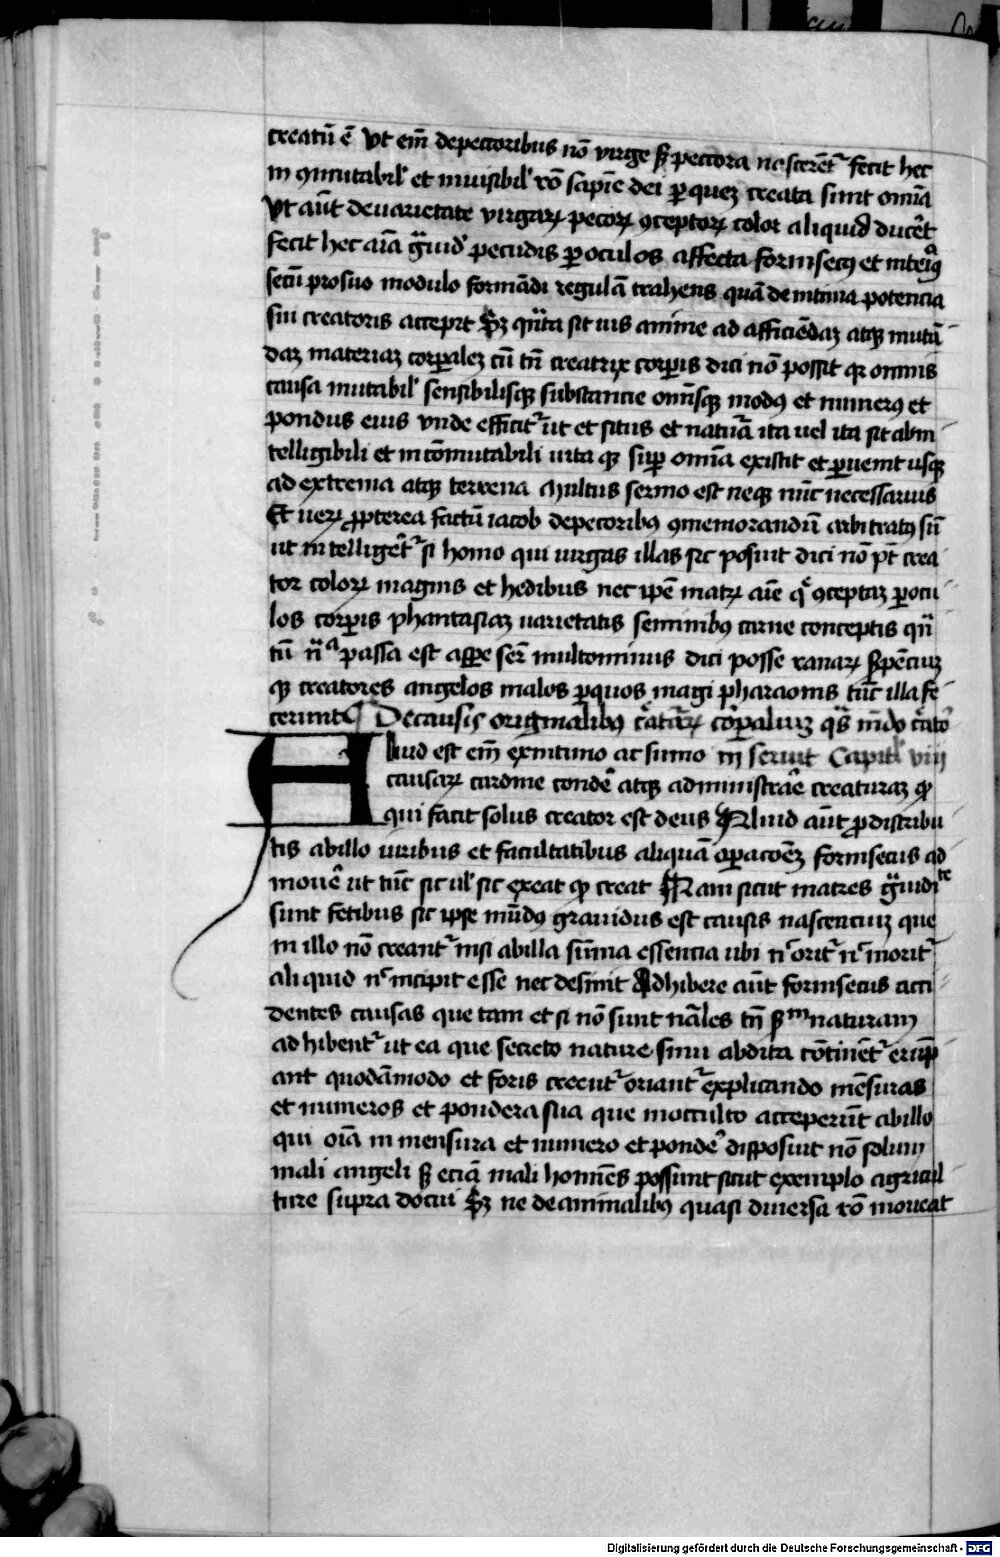 creatũ ẽ Vt em̃ de pectoribus nõ virge sꝫ pectora nascerẽt᷑ fecit hec
in ꝯmutabil᷑ et inuisibil᷑ rõ sapiẽ dei ꝑ quez creata sunt om̃ia
Vt aũt de uarietate virgaꝝ pecoꝝ ꝯceptoꝝ color aliquid ducẽt
fecit hec aĩa g̃uid᷑ pecudis ꝑ oculos affecta forinsecꝰ et interiꝰ
secũ pro suo modulo formãdi regulã trahens quã de intima potencia
sui creatoris accepit Sꝫ q̃nta sit uis anime ad afficiẽdaz atqꝫ mutã
daz materiaz corꝑalez cũ tñ creatrix corꝑis dici nõ possit qꝛ omnis
causa mutabil᷑ sensibilisqꝫ substancie om̃sqꝫ modꝰ et numerꝰ et
pondus eius vnde efficit᷑ ut et situs et natura ita uel ita sit ab in
telligibili et incõmutabili uita qꝫ suꝑ om̃ia existit et ꝑuenit usqꝫ
ad extrema atqꝫ terrena Multus sermo est neqꝫ nũc necessarius
Et ueꝝ ꝓpterea factũ iacob de pecoribꝰ ꝯmemorandũ arbitratꝰ sũ
ut intelligẽt᷑ si homo qui uirgas illas sic posuit dici nõ pt̃ crea
tor coloꝝ in agnis et hedibus nec ip̃e matꝝ aĩe q̃ ꝯceptaz ꝑ ocu
los corꝑis phantasiaz uarietatis seminibꝰ carne conceptis q̃n
tũ nᷓa passa est asꝑsẽr multominus dici posse ranaꝝ sꝑpẽciuz
qꝫ creatores angelos malos ꝑ quos magi pharaonis tũc illa fe
cerunt ¶ De causis originalibꝰ c̃atuꝝ coꝛꝑaliuz q̃s in mũdo c̃ator
Aliud est em̃ ex intimo ac sumo inseruit Capitl᷑ viij
causaꝝ cardine condẽ atqꝫ administrãe creaturaz qꝫ
qui facit solus creator est deus Aliud aũt ꝓ distribu
tis ab illo uiribus et facultatibus aliquã oꝑacoẽz forinsecus ad
mouẽ ut tũc sic ul᷑ sic exeat qꝫ creat Nam sicut matres g̃uidite
sunt fetibus sic ipse mũdꝰ grauidus est causis nascenciuz que
in illo nõ creant᷑ nisi ab illa sũma essencia ubi n᷑ orit᷑ n᷑ morit᷑
aliquid n᷑ incipit esse nec desinit Adhibere aũt forinsecus acci
dentes causas que tam et si nõ sunt nãles tñ sᷓm naturam
adhibent᷑ ut ea que secreto nature sinu abdita cõtinẽt᷑ erũp
ant quodãmodo et foris creent᷑ oriant᷑ explicando mẽsuras
et numeros et pondera sua que in occulto acceperũt ab illo
qui oĩa in mensura et numero et pondẽ disposuit nõ solum
mali angeli sꝫ eciã mali homĩes possunt sicut exemplo agricul
ture supra docui Sꝫ ne de animalibꝰ quasi diuersa rõ moueat
Digitalisierung gefördert durch die Deutsche Forschungsgemeinschaft - DFG